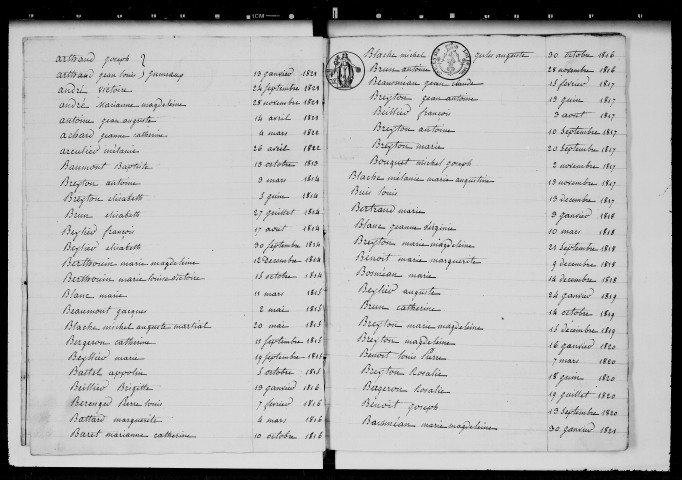 arthaud joseph }
arthaud jean louis } jumeaux 13 janvier 1821
andré victoire 24 septembre 1821
andré Marianne magdeleine 28 novembre 1821
antoine jean auguste 14 avril 1821
achard jeanne catherine 4 mars 1822
arculier mélanie 26 avril 1822
Baumont Baptiste 13 octobre 1813
Breyton antoine 3 mars 1814
Breyton elisabeth 5 juin 1814
Brun elisabeth 27 juillet 1814
Beylier françois 17 aout 1814
Beylier elisabeth 30 septembre 1814
Berthouin marie magdeleine 12 decembre 1814
Berthouin marie louise victoire 15 octobre 1814
Blanc marie 11 mars 1815
Beaumont jacques 2 mai 1815
Blache michel auguste martial 20 mai 1815
Bergeron catherine 11 septembre 1815
Beyllier marie 19 septembre 1815
Battel appolin 5 octobre 1815
Beillier Brigitte 13 janvier 1816
Berenger Pierre louis 7 fevrier 1816
Battard marguerite 4 mars 1816
Baret marianne catherine 10 octobre 1816
Blache michel jules auguste 30 octobre 1816
Brun antoine 28 novembre 1816
Beaumean jean claude 15 fevrier 1817
Breyton jean antoine 13 juin 1817
Beillier françois 3 aout 1817
Breyton antoine 10 septembre 1817
Breyton marie 20 septembre 1817
Bouquet michel joseph 2 novembre 1817
Blache mélanie marie augustine 13 novembre 1817
Buis louis 13 decembre 1817
Bertrand marie 9 janvier 1818
Blanc jeanne virginie 10 mars 1818
Breyton marie magdeleine 21 septembre 1818
Benoit marie marguerite 9 decembre 1818
Bosméan marie 14 decembre 1818
Beylier auguste 24 janvier 1819
Brun catherine 14 octobre 1819
Breyton marie magdeleine 15 decembre 1819
Breyton magdeleine 16 janvier 1820
Benoit louis Pierre 7 mars 1820
Breyton Rosalie 18 juin 1820
Bergeron Rosalie 19 juillet 1820
Benoit joseph 13 septembre 1820
Bauméan marie magdeleine 30 janvier 1821